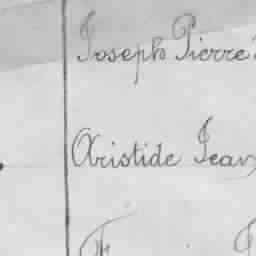 Joseph Pierre
Aristide Jean